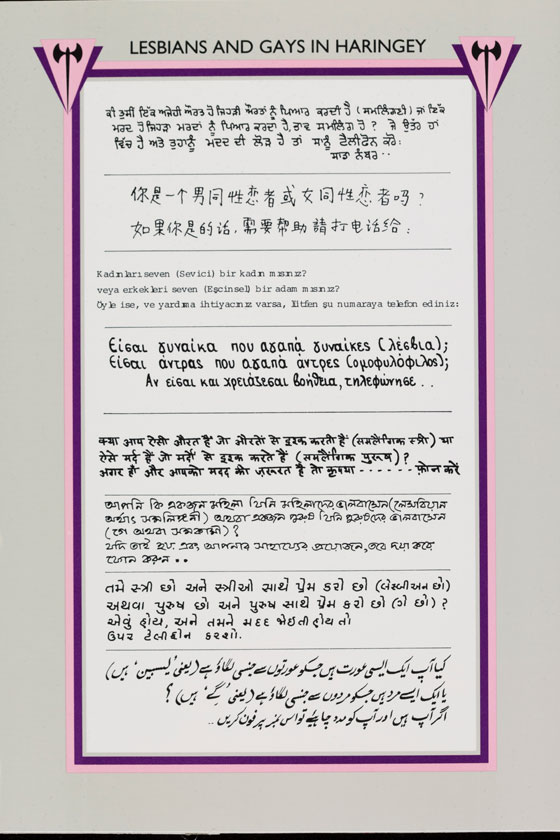 LESBIANS AND GAYS IN HARINGEY
ਕੀ ਤੁਸੀਂ ਇੱਕ ਅਜੇਹੀ ਔਰਤ ਹੋ ਜਿਹੜੀ ਔਰਤਾਂ ਨੂੰ ਪਿਆਰ ਕਰਦੀ ਹੈ (ਸਮਲਿੰਗਣੀ) ਜਾਂ ਇੱਕ
ਮਰਦ ਹੋ ਜਿਹੜਾ ਮਰਦਾਂ ਨੂੰ ਪਿਆਰ ਕਰਦਾ ਹੈ, ਭਾਵ ਸਮਲਿੰਗ ਹੋ ? ਜੇ ਉੱਤਰ ਹਾਂ
ਵਿੱਚ ਹੈ ਅਤੇ ਤੁਹਾਨੂੰ ਮਦਦ ਦੀ ਲੋੜ ਹੈ ਤਾਂ ਸਾਨੂੰ ਟੈਲੀਫੋਨ ਕਰੋ:
ਸਾਡਾ ਨੰਬਰ ..
你是一个男同性恋者或女同性恋者吗?
如果你是的话,需要帮助請打电话给:
Kadınları seven (Sevici) bir kadın mısınız?
veya erkekleri seven (Eşcinsel) bir adam mısınız?
Öyle ise, ve yardıma ihtiyacınız varsa, lütfen şu numaraya telefon ediniz:
Είσαι γυναίκα που αγαπά γυναίκες (λέσβια);
Είσαι άντρας που αγαπά άντρες (ομοφυλόφιλος);
Αν είσαι και χρειάζεσαι βοήθεια, τηλεφώνησε . .
क्या आप ऐसी औरत हैं जो औरतों से इश्क़ करती हैं (समलैंगिक स्त्री) या
ऐसे मर्द हैं जो मर्दों से इश्क़ करते हैं (समलैंगिक पुरूष)?
अगर हाँ और आपको मदद की ज़रूरत है तो कृपया - - - - - - फ़ोन करें
আপনি কি একজন মহিলা যিনি মহিলাদের ভালবাসেন (লেসবিয়ান
অর্থাৎ সমলিঙ্গনী) অথবা একজন পুরুষ যিনি পুরুষদের ভালবাসেন
(গে অথবা সমকামী)?
যদি তাই হয় এবং আপনার সাহায্যের প্রয়োজন, তবে দয়া করে
ফোন করুন ..
તમે સ્ત્રી છો અને સ્ત્રીઓ સાથે પ્રેમ કરો છો (લેસ્બીઅન છો)
અથવા પુરુષ છો અને પુરુષ સાથે પ્રેમ કરો છો (ગે છો) ?
એવું હોય, અને તમને મદદ જોઇતી હોય તો
ઉપર ટેલીફોન કરશો.
کیا آپ ایک ایسی عورت ہیں جسکو عورتوں سے جنسی لگاؤ ہے (یعنی 'لیسبین' ہیں)
یا ایک ایسے مرد ہیں جسکو مردوں سے جنسی لگاؤ ہے (یعنی 'گے' ہیں) ؟
اگر آپ ہیں اور آپ کو مدد چاہیئے تو اس نمبر پر فون کریں ..